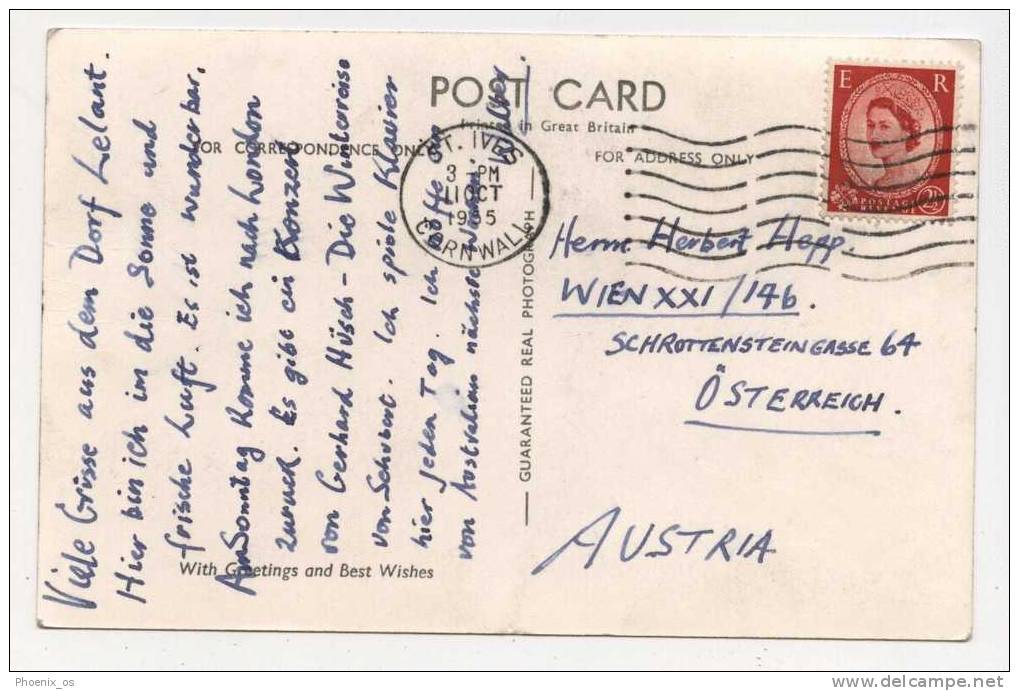 POST CARD
Printed in Great Britain
FOR CORRESPONDENCE ONLY
FOR ADDRESS ONLY
ST. IVES
3 PM
11 OCT
1955
CORNWALL
E R
POSTAGE
REVENUE
2½
Viele Grüsse aus dem Dorf Lelant.
Hier bin ich in die Sonne und
frische Luft. Es ist wunderbar.
Am Sonntag komme ich nach London
zurück. Es gibt ein Konzert
von Gerhard Hüsch - Die Winterreise
von Schubert. Ich spiele Klavier
hier jeden Tag. Ich hoffe
von Australien nächste Woche.
Herrn Herbert Hepp.
WIEN XXI/146.
SCHROTTENSTEINGASSE 64
ÖSTERREICH.
AUSTRIA
GUARANTEED REAL PHOTOGRAPH
With Greetings and Best Wishes
Phoenix_os
delcampe.net